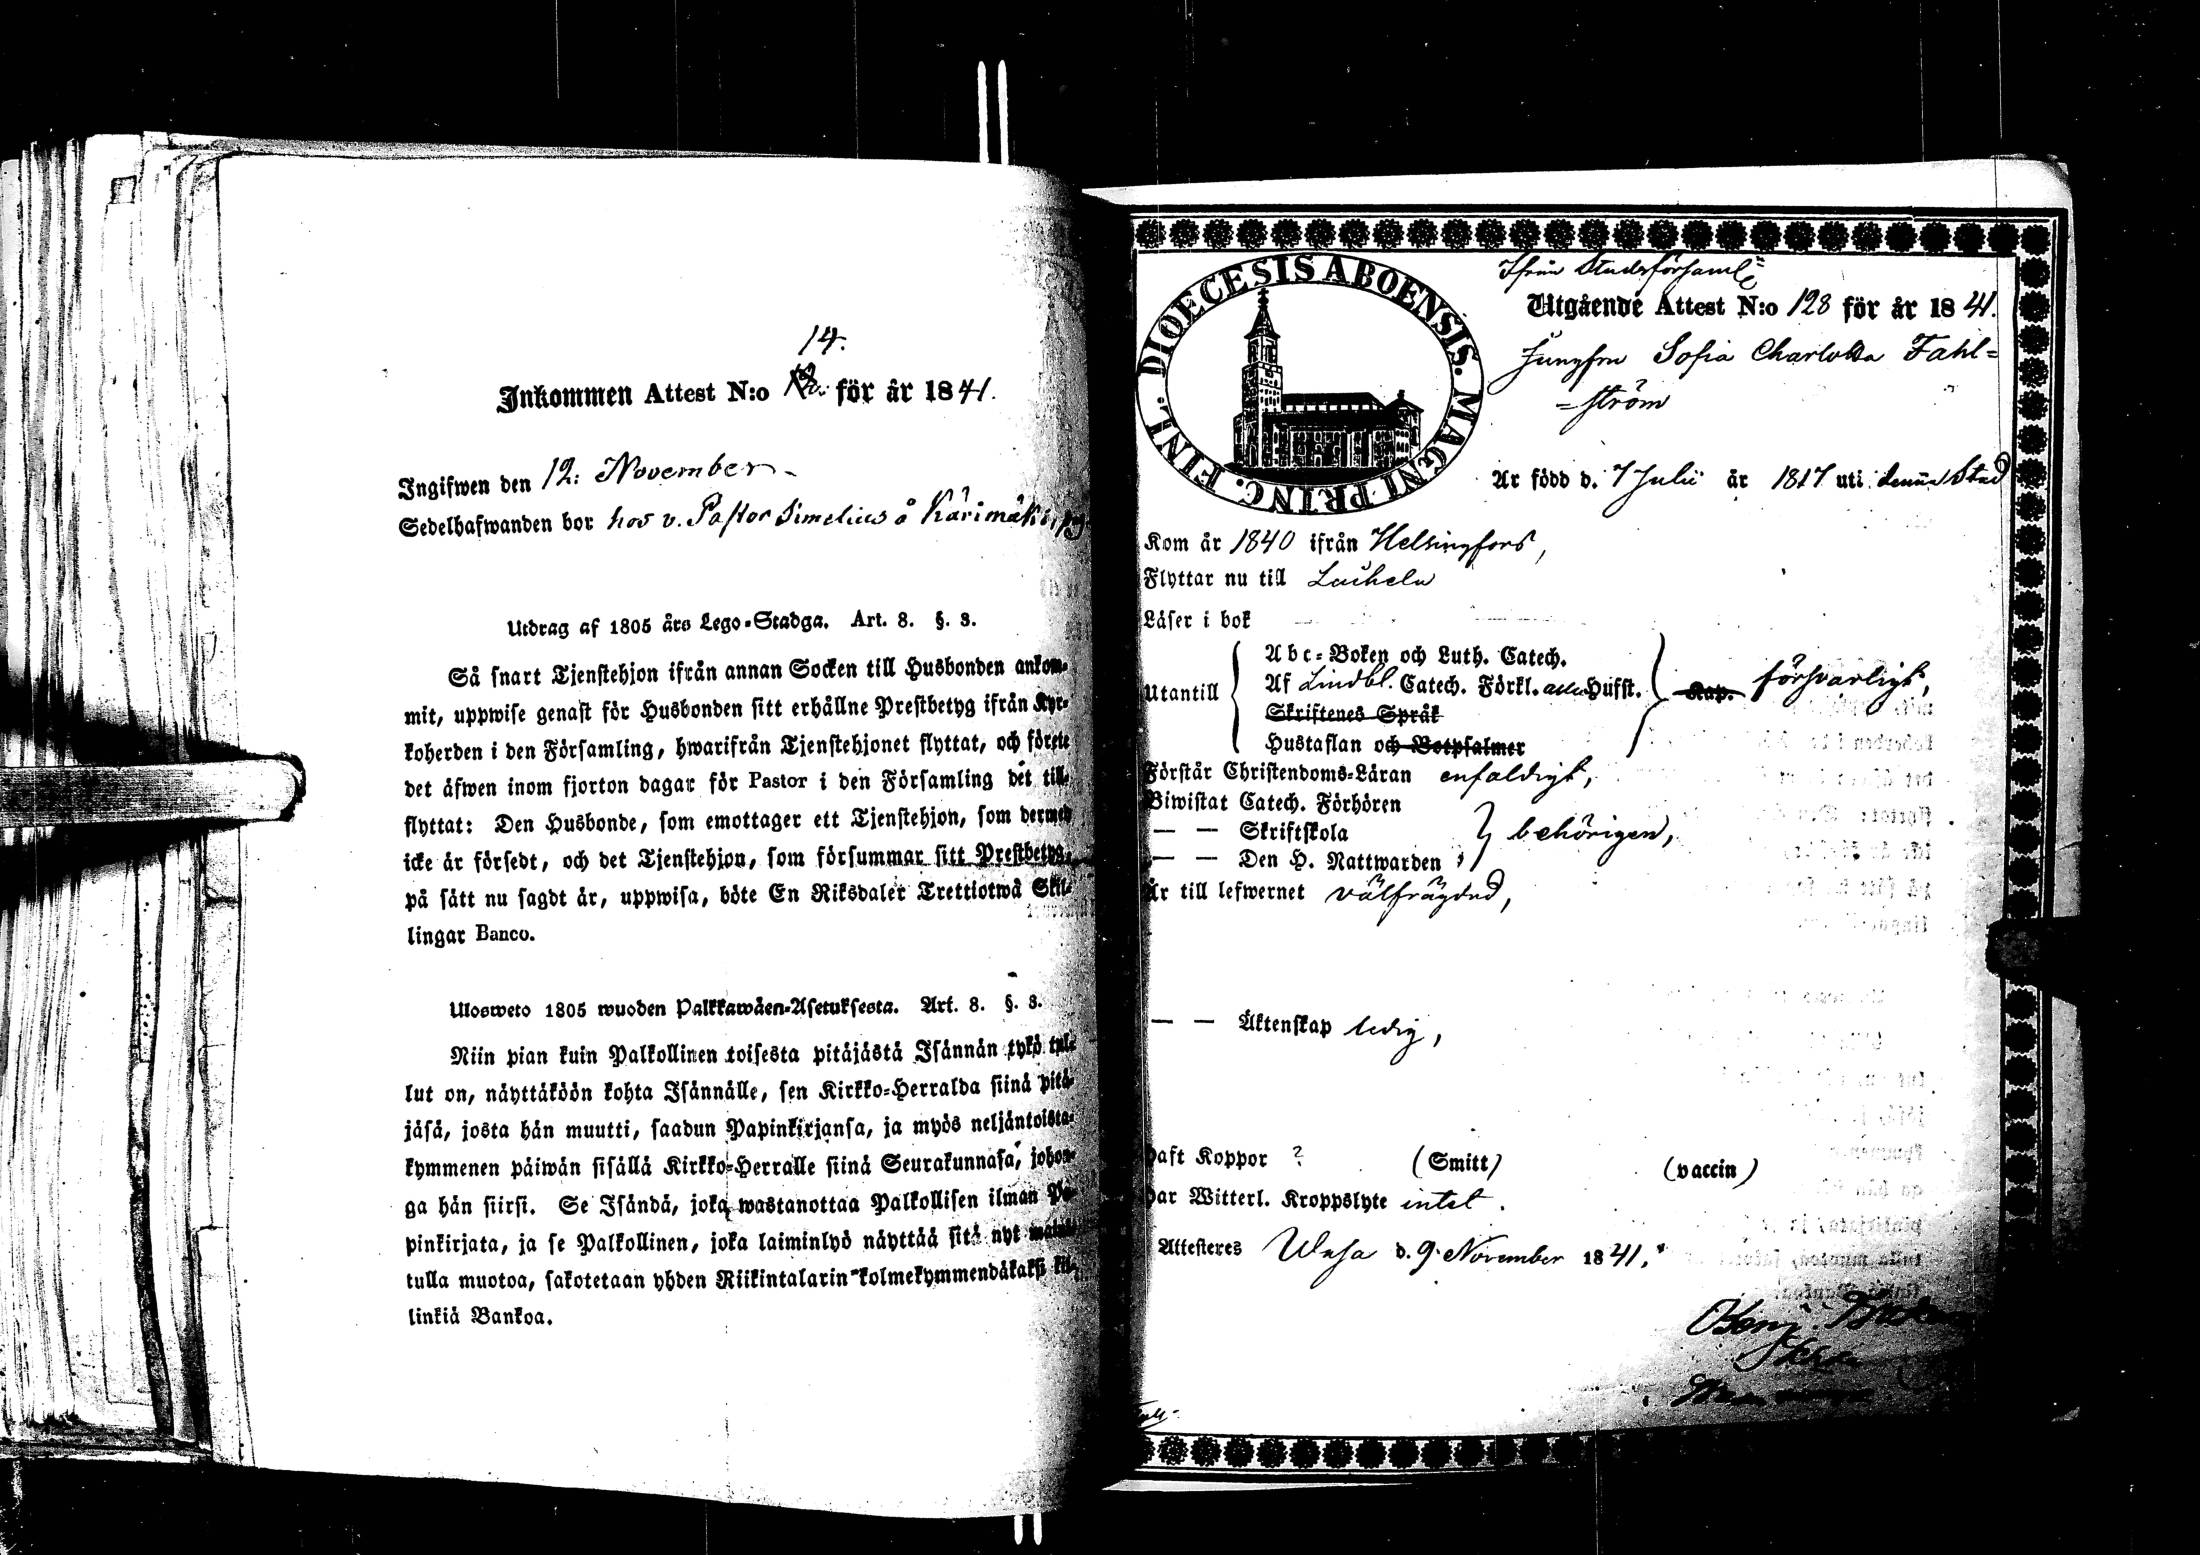 14.
Inkommen Attest N:o för år 1841.
Ingifwen den 12: November
Sedelhafwanden bor hos v. Pastor Simelius å Kärimäki
Utdrag af 1805 års Lego-Stadga. Art. 8. §. 3.
Så snart Tjenstehjon ifrån annan Socken till Husbonden ankom-
mit, uppwise genast för Husbonden sitt erhållne Prestbetyg ifrån Kyr-
koherden i den Församling, hwarifrån Tjenstehjonet flyttat, och förete
det äfwen inom fjorton dagar för Pastor i den Församling det till-
flyttat: Den Husbonde, som emottager ett Tjenstehjon, som dermed
icke är försedt, och det Tjenstehjon, som försummar sitt Prestbetyg,
på sätt nu sagdt är, uppwisa, böte En Riksdaler Trettiotwå Skil-
lingar Banco.
Ulosweto 1805 wuoden Palkkawäen-Asetuksesta. Art. 8. §. 3.
Niin pian kuin Palkollinen toisesta pitäjästä Isännän tykö tul-
lut on, näyttäköön kohta Isännälle, sen Kirkko-Herralda siinä pitä-
jäsä, josta hän muutti, saadun Papinkirjansa, ja myös neljäntoista-
kymmenen päiwän sisällä Kirkko-Herralle siinä Seurakunnasa, johon-
ga hän siirsi. Se Isändä, joka wastanottaa Palkollisen ilman Pa-
pinkirjata, ja se Palkollinen, joka laiminlyö näyttää sitä nyt maini-
tulla muotoa, sakotetaan yhden Riikintalarin kolmekymmendäkaksi kil-
linkiä Bankoa.
DIOECESIS ABOENSIS. MAGNI PRINC. FINL.
Ifrån Stadsförsaml
Utgående Attest N:o 128 för år 1841.
Jungfru Sofia Charlotta Fahl=
=ström
Är född d. 7 Julii år 1817 uti denna Stad
Kom år 1840 ifrån Helsingfors,
Flyttar nu till Laihela
Läser i bok
Utantill
Abc-Boken och Luth. Catech.
Af Lindbl. Catech. Förkl. alla Hufst. Kap. försvarligt,
Skriftenes Språk
Hustaflan och Botpsalmer
Förstår Christendoms-Läran enfaldigt,
Biwistat Catech. Förhören
— — Skriftskola behörigen,
— — Den H. Nattwarden
Är till lefwernet välfrägdad,
— — Äktenskap ledig,
Haft Koppor ? (Smitt) (vaccin)
Har Witterl. Kroppslyte intet.
Attesteres Wasa d. 9 November 1841.
Benj.